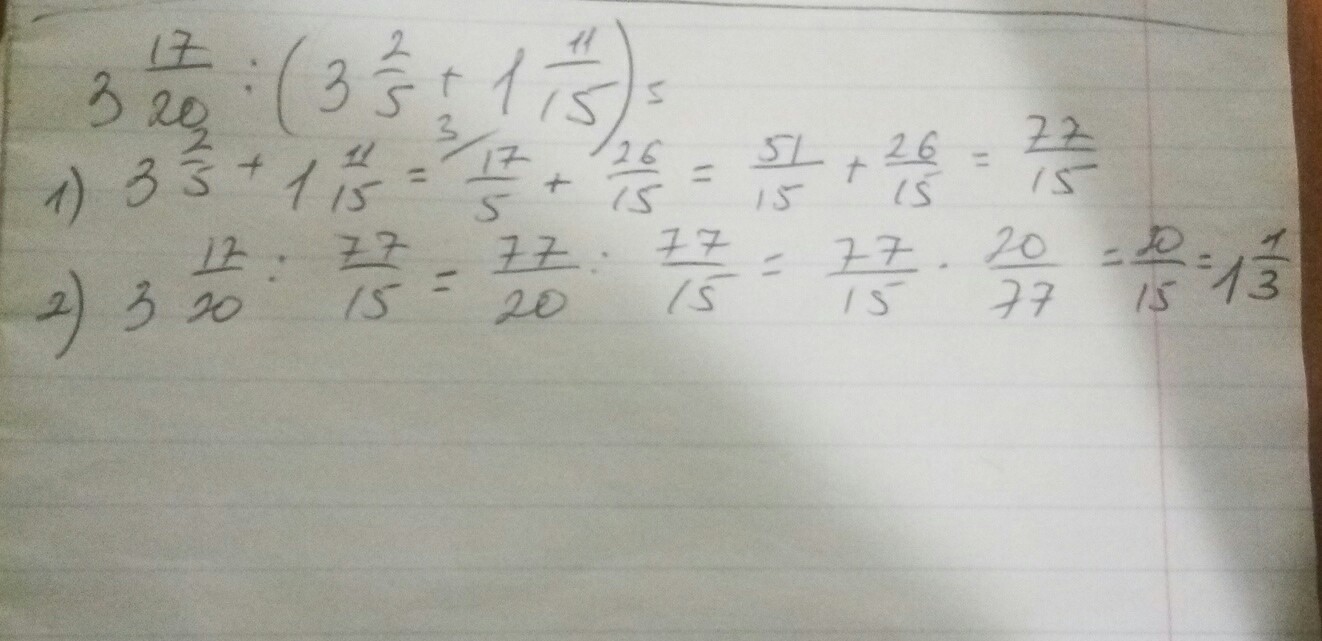 3 17/20 : (3 2/5 + 1 11/15) =
1) 3 2/5 + 1 11/15 = 3/ 17/5 + 26/15 = 51/15 + 26/15 = 77/15
2) 3 17/20 : 77/15 = 77/20 : 77/15 = 77/15 · 20/77 = 20/15 = 1 1/3